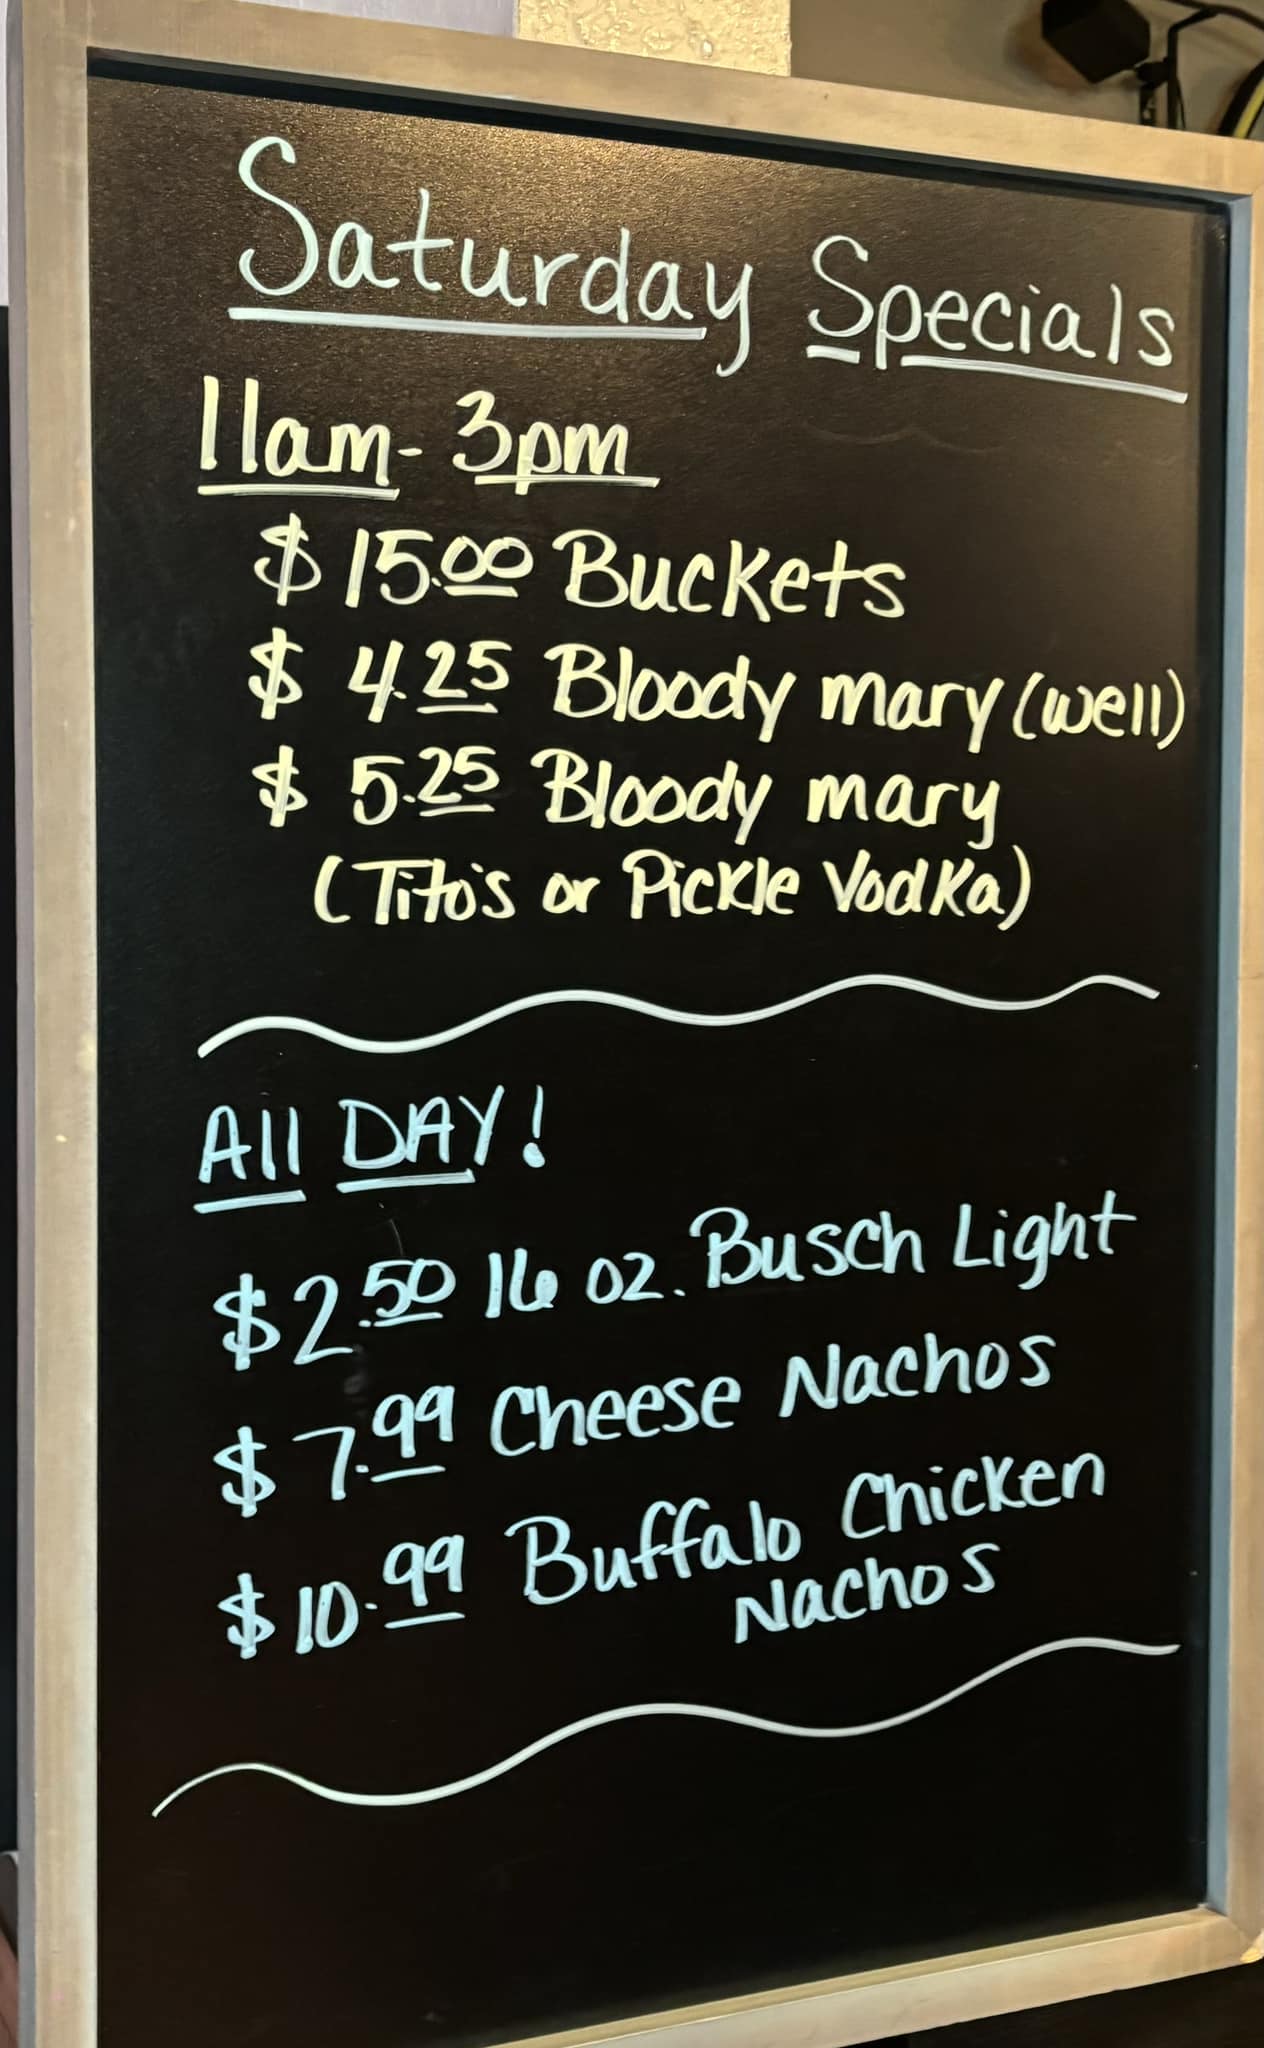 Saturday Specials
11am - 3pm
$ 15.00 Buckets
$ 4.25 Bloody mary (well)
$ 5.25 Bloody mary
(Tito's or Pickle Vodka)
All DAY!
$2.50 16 oz. Busch Light
$7.99 Cheese Nachos
$10.99 Buffalo Chicken
Nachos